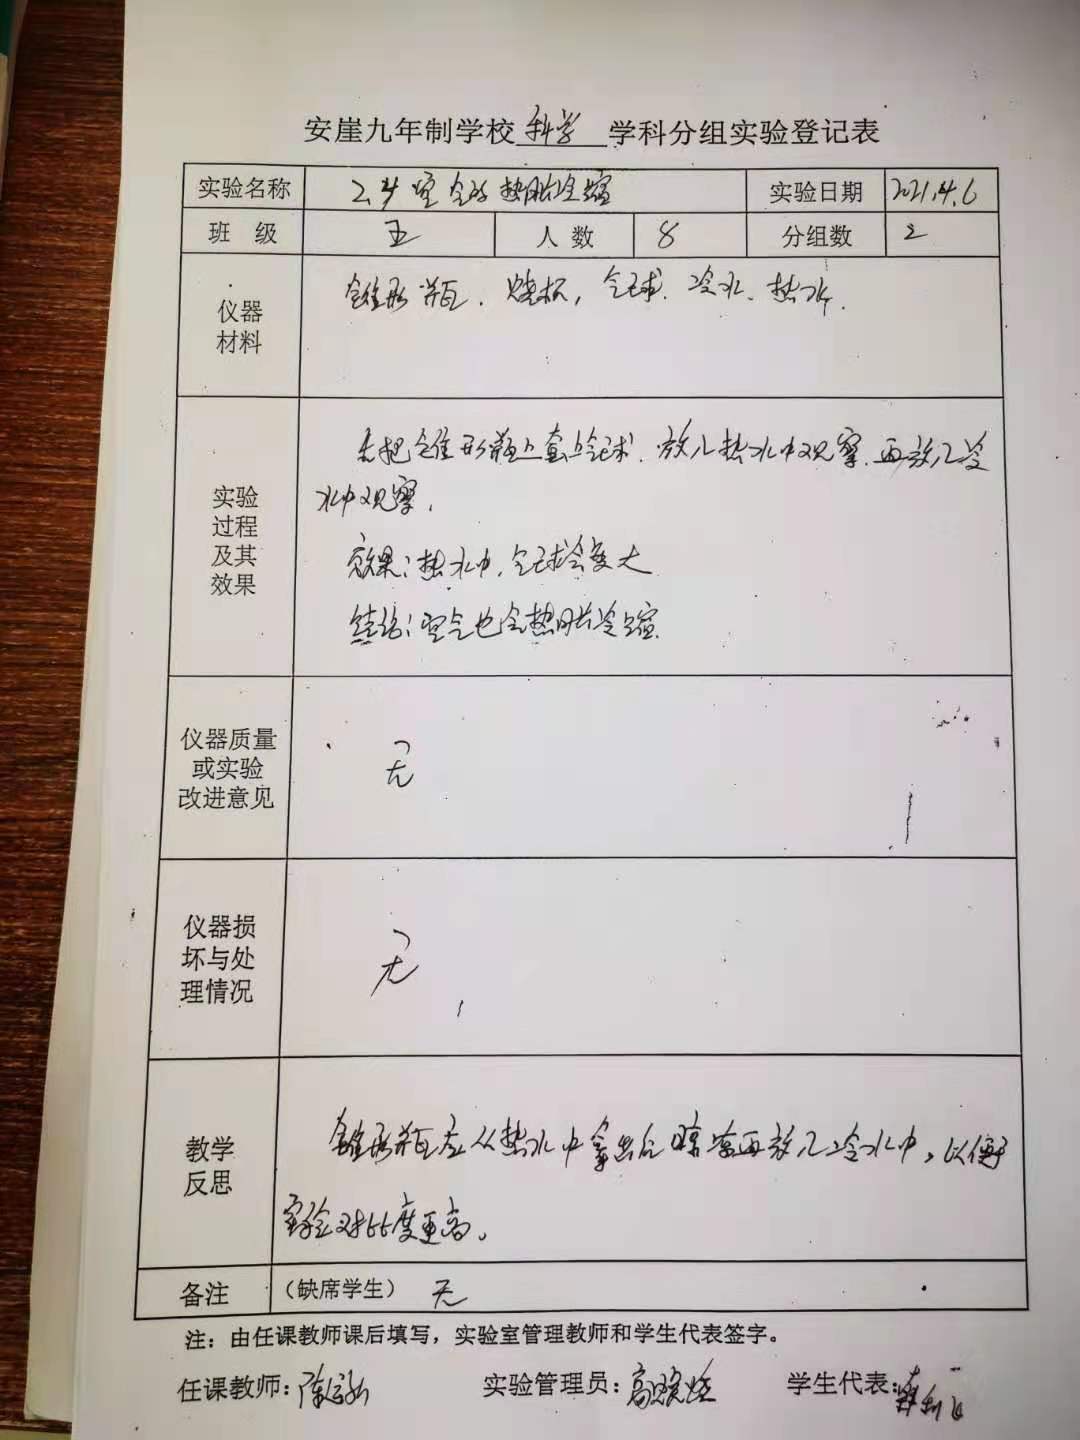 安崖九年制学校 科学 学科分组实验登记表
实验名称 2.4 空气的热胀冷缩 实验日期 2021.4.6
班 级 五 人 数 8 分组数 2
仪器材料 锥形瓶、烧杯、气球、冷水、热水.
实验过程及其效果
去把锥形瓶上套上气球.放入热水中观察.再放入冷
水中观察.
效果:热水中,气球会变大
结论:空气也会热胀冷缩.
仪器质量或实验改进意见 无
仪器损坏与处理情况 无
教学反思
锥形瓶应从热水中拿出后晾凉再放入冷水中,以便于
实验对比度更高。
备注 (缺席学生) 无
注:由任课教师课后填写,实验室管理教师和学生代表签字。
任课教师: 实验管理员: 学生代表: